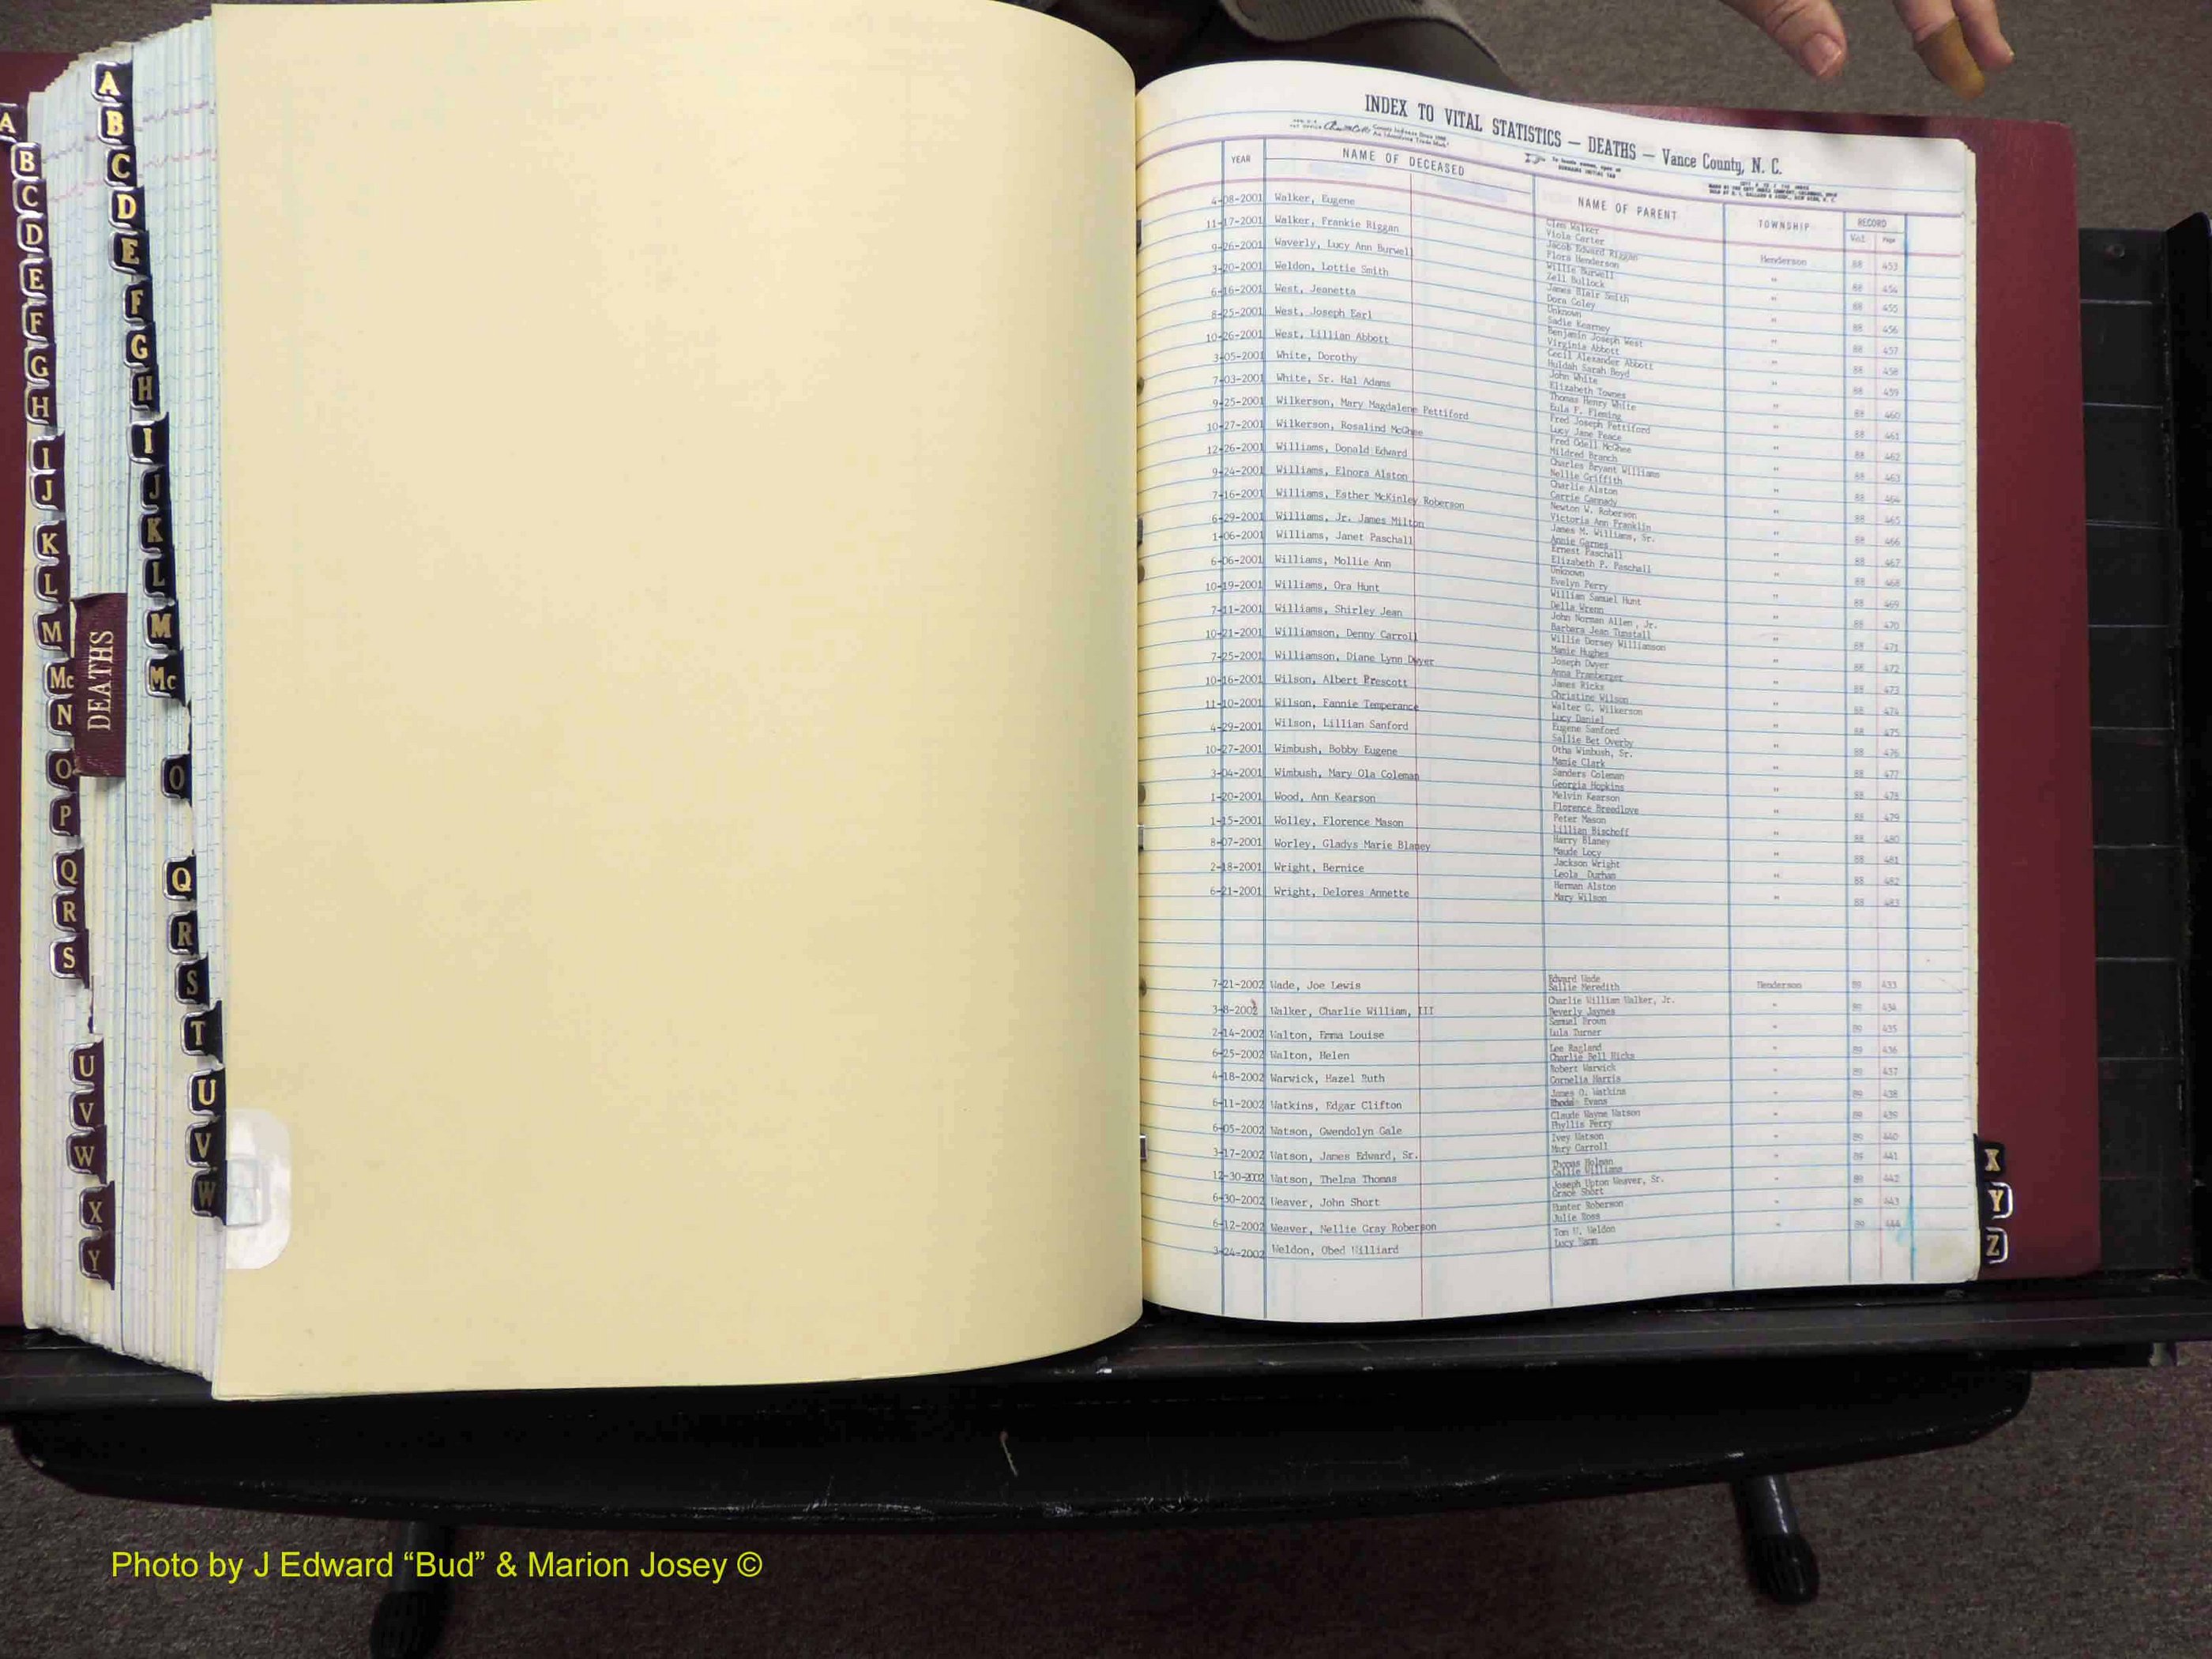 A
B
C
D
E
F
G
H
I
J
K
L
M
Mc
N
O
P
Q
R
S
U
V
W
X
Y
DEATHS
A
B
C
D
E
F
G
H
I
J
K
L
M
Mc
O
Q
R
S
T
U
V
W
INDEX TO VITAL STATISTICS — DEATHS — Vance County, N. C.
YEAR NAME OF DECEASED NAME OF PARENT TOWNSHIP RECORD
Vol. Page
4-08-2001 Walker, Eugene Walker Henderson 88 453
Viola Carter
11-17-2001 Walker, Frankie Riggan Jacob Edward Riggan " 88 454
Flora Henderson
9-26-2001 Waverly, Lucy Ann Burwell Willie Burwell " 88 455
Zell Bullock
3-20-2001 Weldon, Lottie Smith James Blair Smith " 88 456
Dora Coley
6-16-2001 West, Jeanetta Unknown " 88 457
Sadie Kearney
8-25-2001 West, Joseph Earl Benjamin Joseph West " 88 458
Virginia Abbott
10-26-2001 West, Lillian Abbott Cecil Alexander Abbott " 88 459
Huldah Sarah Boyd
3-05-2001 White, Dorothy John White " 88 460
Elizabeth Townes
7-03-2001 White, Sr. Hal Adams Thomas Henry White " 88 461
Eula F. Fleming
9-25-2001 Wilkerson, Mary Magdalene Pettiford Fred Joseph Pettiford " 88 462
Lucy Jane Peace
10-27-2001 Wilkerson, Rosalind McGhee Fred Odell McGhee " 88 463
Mildred Branch
12-26-2001 Williams, Donald Edward Charles Bryant Williams " 88 464
Nellie Griffith
9-24-2001 Williams, Elnora Alston Charlie Alston " 88 465
Carrie Cannady
7-16-2001 Williams, Esther McKinley Roberson Newton W. Roberson " 88 466
Victoria Ann Franklin
6-29-2001 Williams, Jr. James Milton James M. Williams, Sr. " 88 467
Annie Garnes
1-06-2001 Williams, Janet Paschall Ernest Paschall " 88 468
Elizabeth P. Paschall
6-06-2001 Williams, Mollie Ann Unknown " 88 469
Evelyn Perry
10-19-2001 Williams, Ora Hunt William Samuel Hunt " 88 470
Della Wrenn
7-11-2001 Williams, Shirley Jean John Norman Allen, Jr. " 88 471
Barbara Jean Tunstall
10-21-2001 Williamson, Denny Carroll Willie Dorsey Williamson " 88 472
Mamie Hughes
7-25-2001 Williamson, Diane Lynn Dwyer Joseph Dwyer " 88 473
Anna Pramberger
10-16-2001 Wilson, Albert Prescott James Ricks " 88 474
Christine Wilson
11-10-2001 Wilson, Fannie Temperance Walter G. Wilkerson " 88 475
Lucy Daniel
4-29-2001 Wilson, Lillian Sanford Eugene Sanford " 88 476
Sallie Bet Overby
10-27-2001 Wimbush, Bobby Eugene Otha Wimbush, Sr. " 88 477
Mamie Clark
3-04-2001 Wimbush, Mary Ola Coleman Sanders Coleman " 88 478
Georgia Hopkins
1-20-2001 Wood, Ann Kearson Melvin Kearson " 88 479
Florence Breedlove
1-15-2001 Wolley, Florence Mason Peter Mason " 88 480
Lillian Bischoff
8-07-2001 Worley, Gladys Marie Blaney Harry Blaney " 88 481
Maude Locy
2-18-2001 Wright, Bernice Jackson Wright " 88 482
Leola Durham
6-21-2001 Wright, Delores Annette Herman Alston " 88 483
Mary Wilson
7-21-2002 Wade, Joe Lewis Edward Wade Henderson 89 433
Sallie Meredith
3-8-2002 Walker, Charlie William, III Charlie William Walker, Jr. " 89 434
Beverly Jaynes
2-14-2002 Walton, Emma Louise Samuel Brown " 89 435
Lula Turner
6-25-2002 Walton, Helen Lee Ragland " 89 436
Charlie Bell Hicks
4-18-2002 Warwick, Hazel Ruth Robert Warwick " 89 437
Cornelia Harris
6-11-2002 Watkins, Edgar Clifton James O. Watkins " 89 438
Rhoda Evans
6-05-2002 Watson, Gwendolyn Gale Claude Wayne Watson " 89 439
Phyllis Perry
3-17-2002 Watson, James Edward, Sr. Ivey Watson " 89 440
Mary Carroll
12-30-2002 Watson, Thelma Thomas Thomas Holman " 89 441
Callie Williams
6-30-2002 Weaver, John Short Joseph Upton Weaver, Sr. " 89 442
Grace Short
6-12-2002 Weaver, Nellie Gray Roberson Hunter Roberson " 89 443
Julie Ross
3-24-2002 Weldon, Obed Williard Tom W. Weldon " 89 444
Lucy
X
Y
Z
Photo by J Edward “Bud” & Marion Josey ©